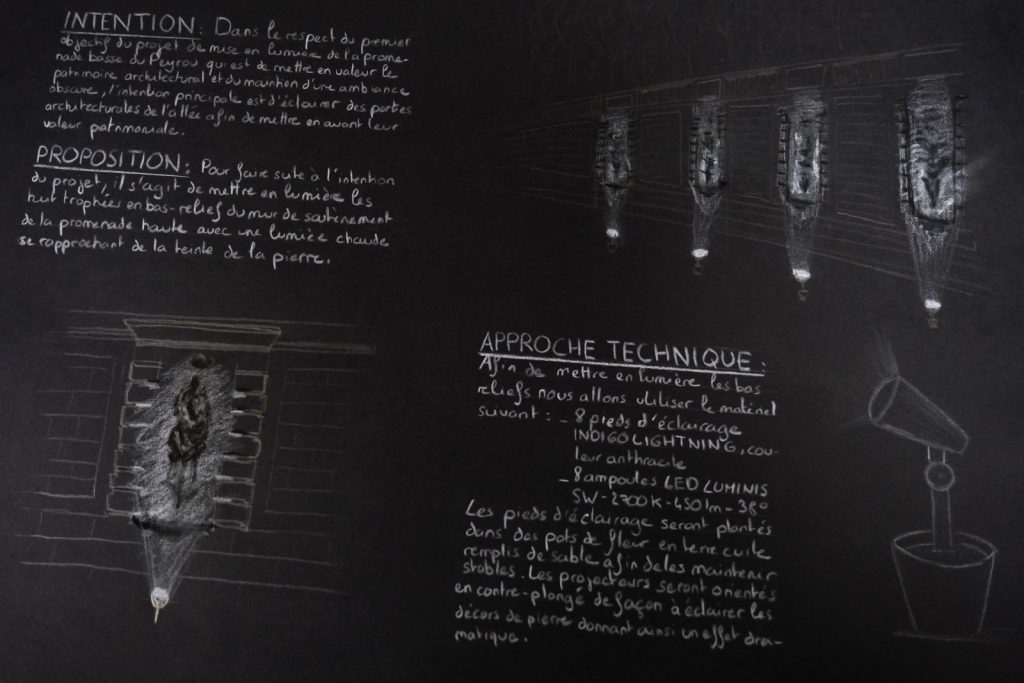 INTENTION : Dans le respect du premier
objectif du projet de mise en lumière de la prome-
nade basse du Peyrou qui est de mettre en valeur le
patrimoine architectural et du maintien d'une ambiance
obscure, l'intention principale est d'éclairer des parties
architecturales de l'allée afin de mettre en avant leur
valeur patrimoniale.
PROPOSITION : Pour faire suite à l'intention
du projet, il s'agit de mettre en lumière les
huit trophées en bas-relief du mur de soutènement
de la promenade haute avec une lumière chaude
se rapprochant de la teinte de la pierre.
APPROCHE TECHNIQUE :
Afin de mettre en lumière les bas
reliefs nous allons utiliser le matériel
suivant : - 8 pieds d'éclairage
INDIGO LIGHTNING, cou-
leur anthracite
- 8 ampoules LED LUMINIS
SW-2700K-450lm-38°
Les pieds d'éclairage seront plantés
dans des pots de fleur en terre cuite
remplis de sable afin de les maintenir
stables. Les projecteurs seront orientés
en contre-plongé de façon à éclairer les
décors de pierre donnant ainsi un effet dra-
matique.